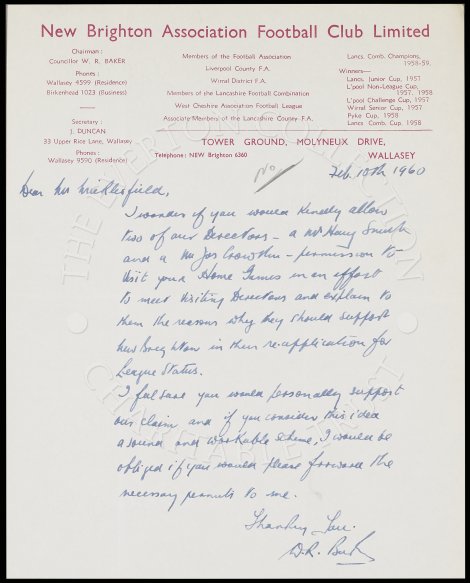 New Brighton Association Football Club Limited
Chairman :
Councillor W. R. BAKER
Phones :
Wallasey 4599 (Residence)
Birkenhead 1023 (Business)
Secretary :
J. DUNCAN
33 Upper Rice Lane, Wallasey
Phones :
Wallasey 9590 (Residence)
Members of the Football Association
Liverpool County F.A.
Wirral District F.A.
Members of the Lancashire Football Combination
West Cheshire Association Football League
Associate Members of the Lancashire County F.A.
Lancs. Comb. Champions,
1958-59.
Winners—
Lancs. Junior Cup, 1957
L'pool Non-League Cup,
1957, 1958
L'pool Challenge Cup, 1957
Wirral Senior Cup, 1957
Pyke Cup, 1958
Lancs. Comb. Cup, 1958
TOWER GROUND, MOLYNEUX DRIVE,
WALLASEY
Telephone: NEW Brighton 6360
No
Feb. 10th 1960
Dear Mr Micklesfield,
I wonder if you would kindly allow
two of our Directors - a Mr Harry Smith
and a Mr Jos Crowther - permission to
visit your Home Games in an effort
to meet Visiting Directors and explain to
them the reasons why they should support
New Brighton in their re-application for
League Status.
I feel sure you would personally support
our claim and if you consider this idea
a sound and workable scheme, I would be
obliged if you would please forward the
necessary permits to me.
Thanking You.
THE EVERTON COLLECTION
CHARITABLE TRUST